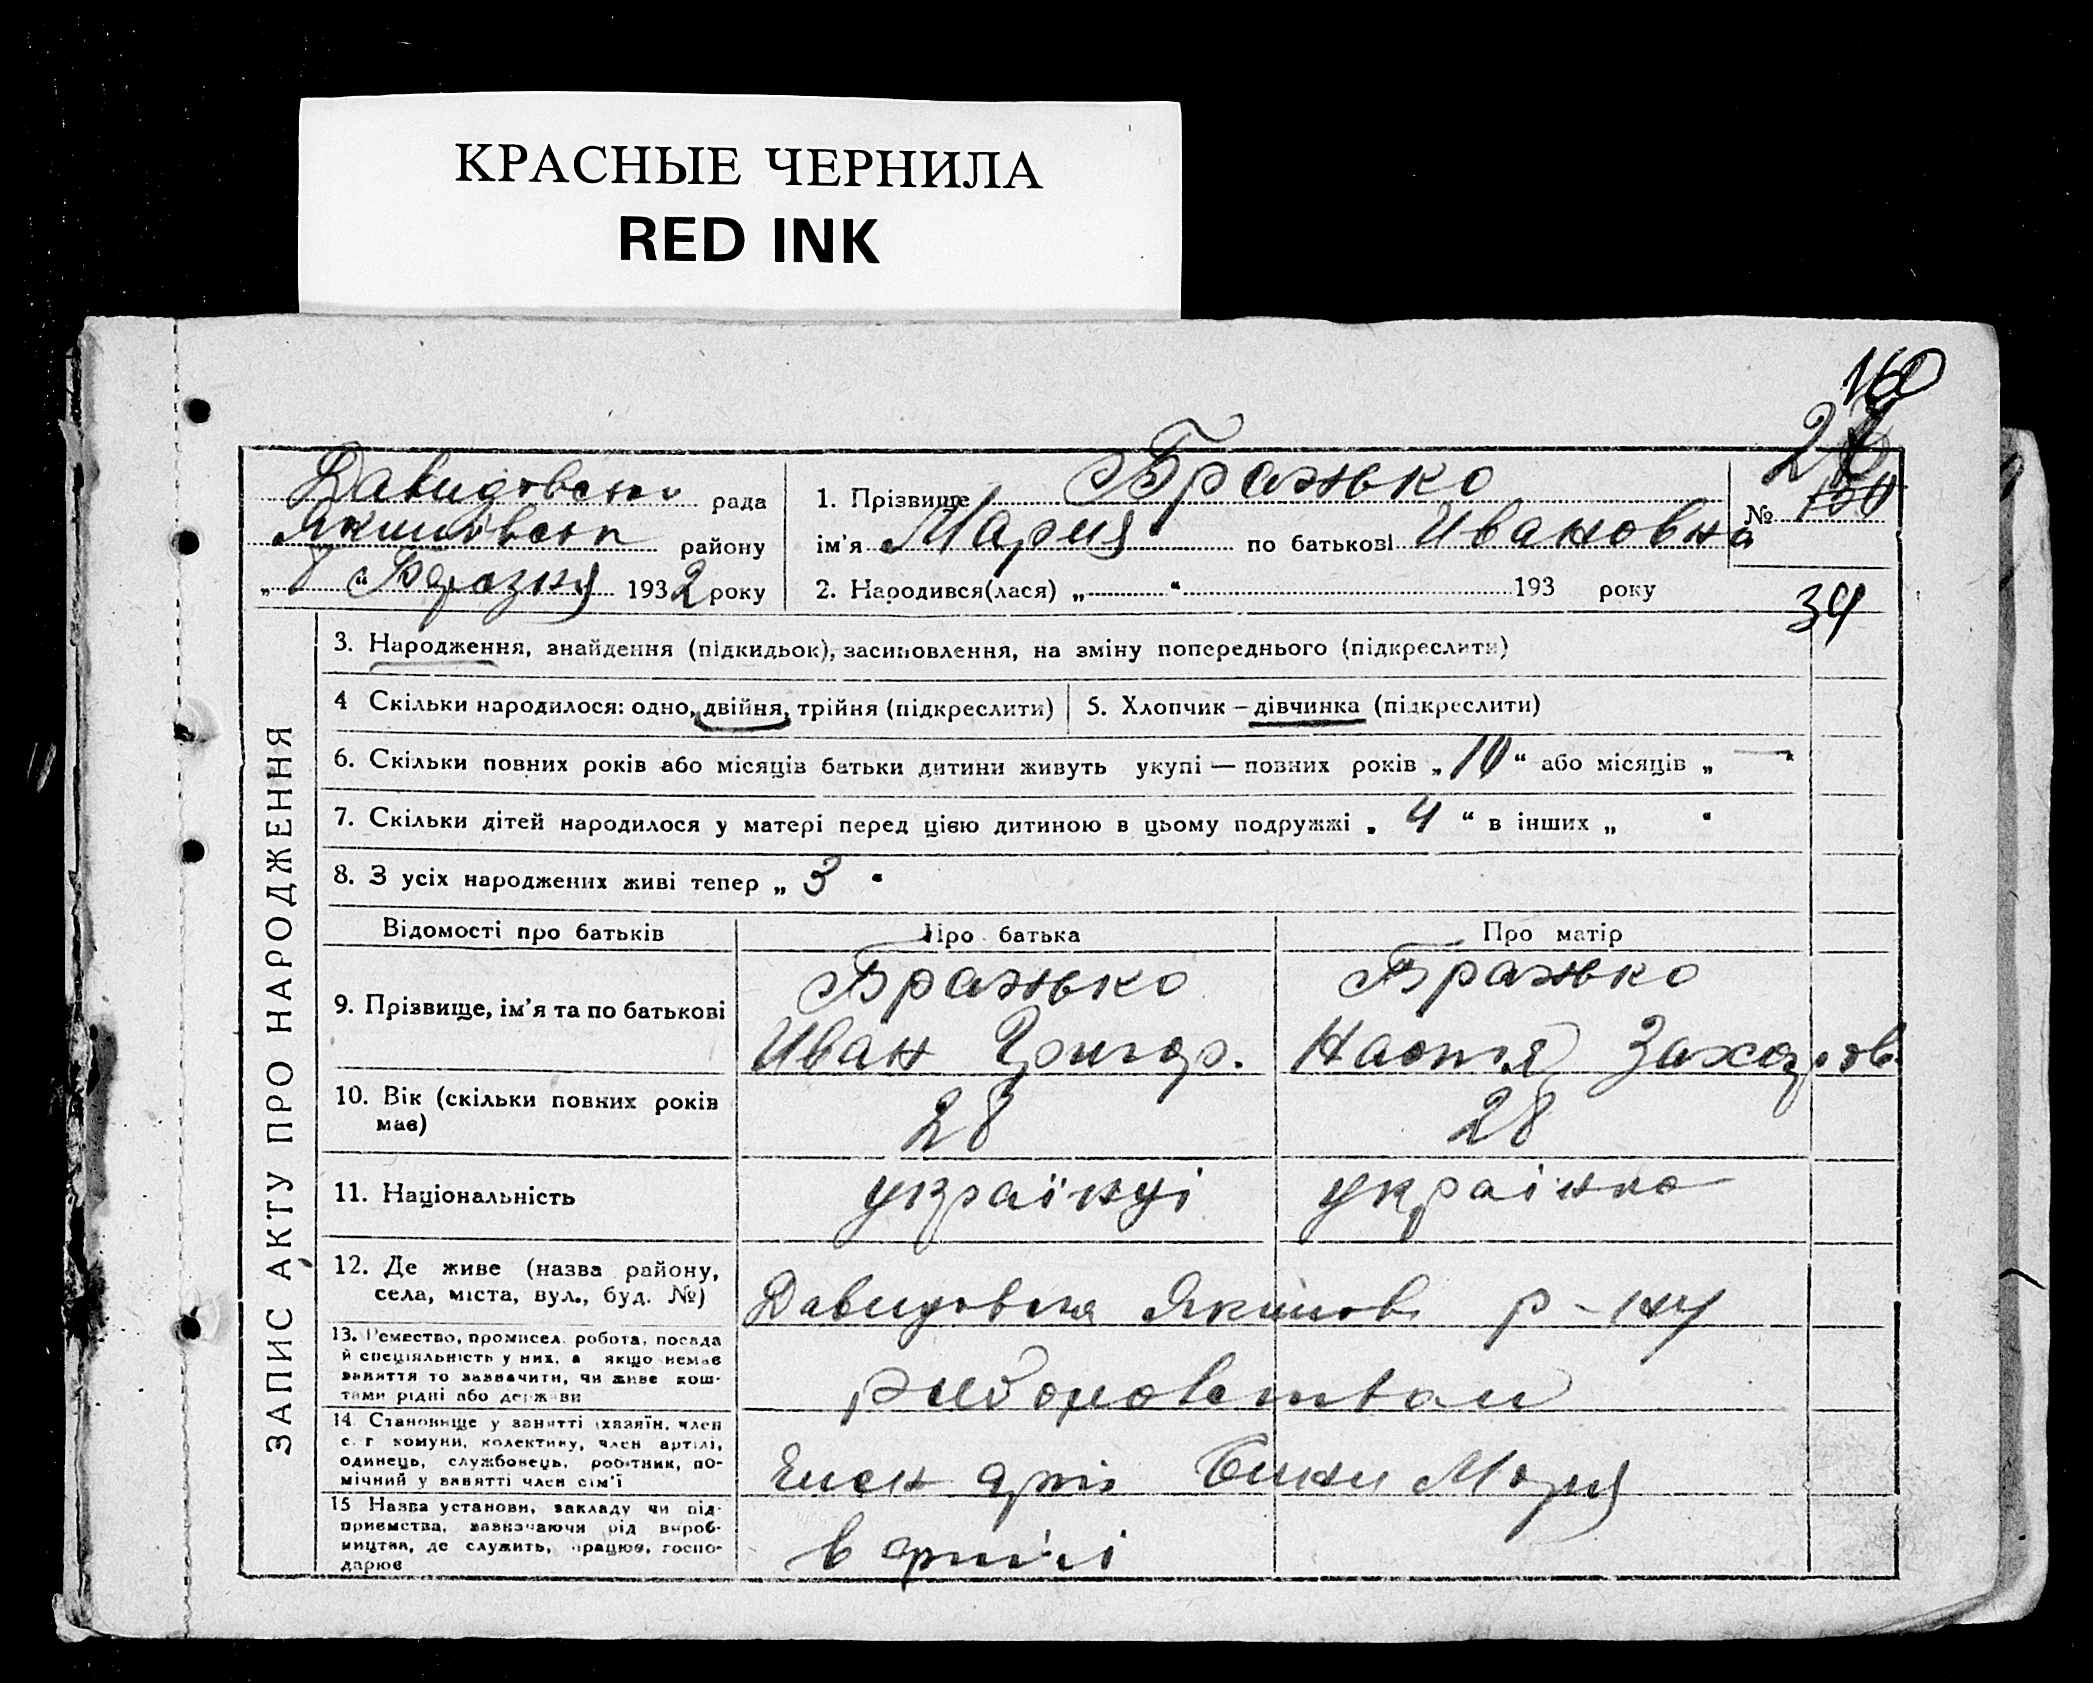 КРАСНЫЕ ЧЕРНИЛА
RED INK
160
27
Давидовськ рада
Якимовськ району
„ 8 “ Березня 1932 року
1. Прізвище Бражко
ім'я Мария по батькові Ивановна
№ 130
2. Народився(лася) „ “ 193 року
34
ЗАПИС АКТУ ПРО НАРОДЖЕННЯ
3. Народження, знайдення (підкидьок), засиновлення, на зміну попереднього (підкреслити)
4 Скільки народилося: одно, двійня, трійня (підкреслити)
5. Хлопчик – дівчинка (підкреслити)
6. Скільки повних років або місяців батьки дитини живуть укупі — повних років „ 10 “ або місяців „ — “
7. Скільки дітей народилося у матері перед цією дитиною в цьому подружжі „ 4 “ в інших „ “
8. З усіх народжених живі тепер „ 3 “
Відомості про батьків
Про батька
Про матір
9. Прізвище, ім'я та по батькові
Бражко
Иван Григор.
Бражко
Настя Захаров
10. Вік (скільки повних років має)
28
28
11. Національність
українці
українка
12. Де живе (назва району,
села, міста, вул., буд. №)
Давидовка Якимов р-ну
13. Ремество, промисел, робота, посада
й спеціяльність у них, а якщо немає
заняття то зазначити, чи живе кош-
тами рідні або держави
14 Становище у занятті (хазяїн, член
с. г комуни, колективу, член артілі,
одинець, службовець, робітник, по-
мічний у занятті член сім'ї
Член арті
15 Назва установи, закладу чи під-
приємства, зазначаючи рід вироб-
ництва, де служить, працює, госпо-
дарює
в артілі